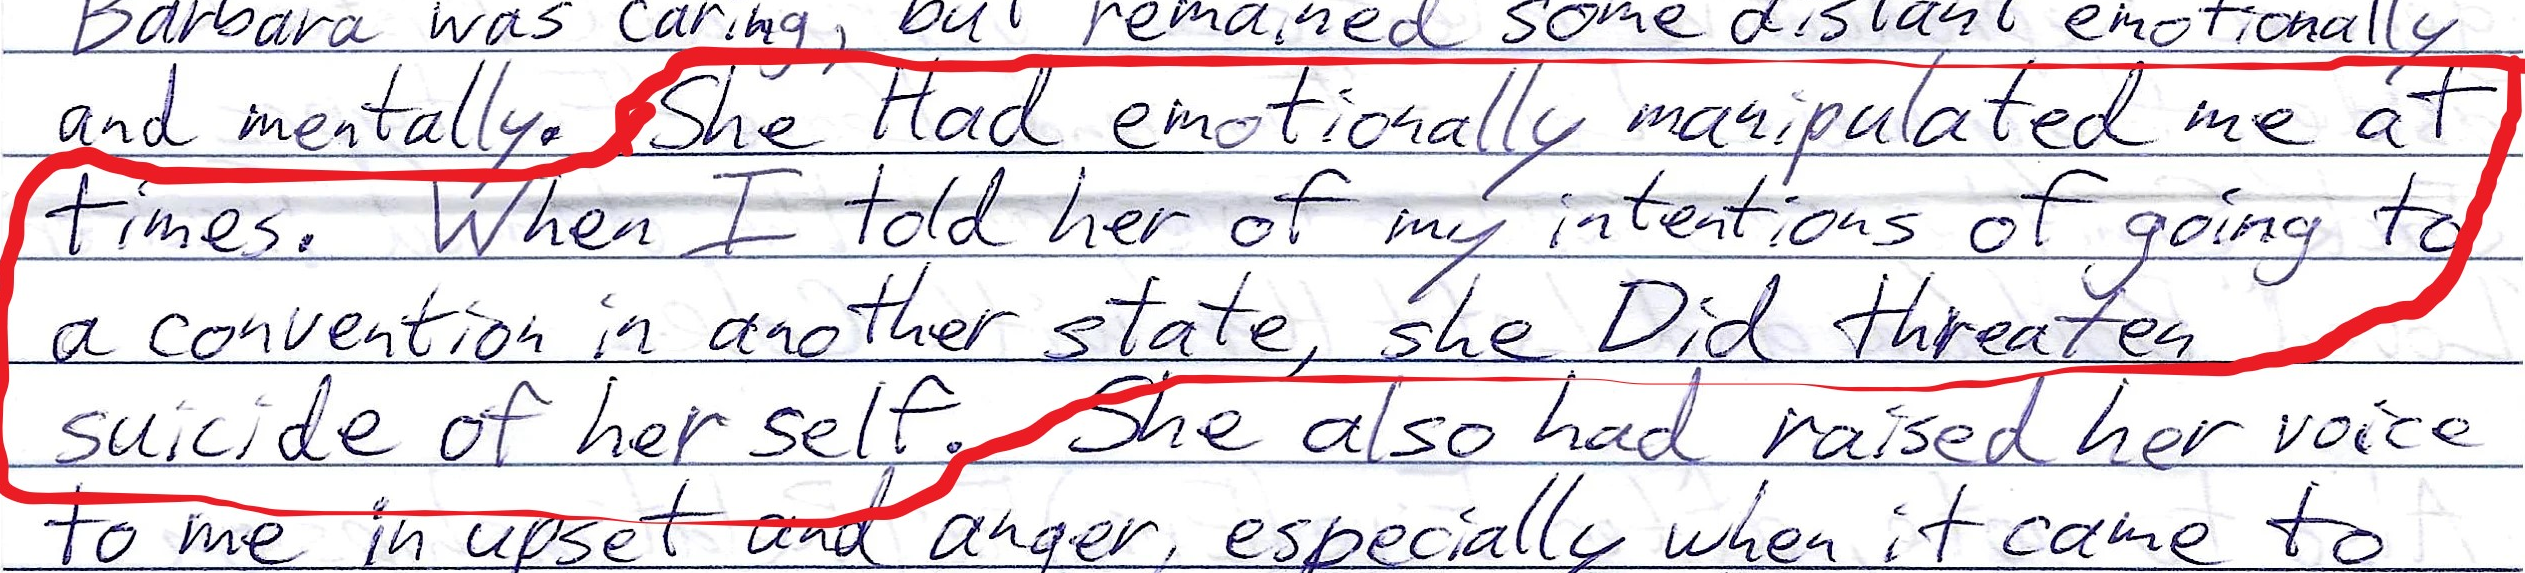 Barbara was caring, but remained some distant emotionally
and mentally. She Had emotionally manipulated me at
times. When I told her of my intentions of going to
a convention in another state, she Did threaten
suicide of her self. She also had raised her voice
to me in upset and anger, especially when it came to